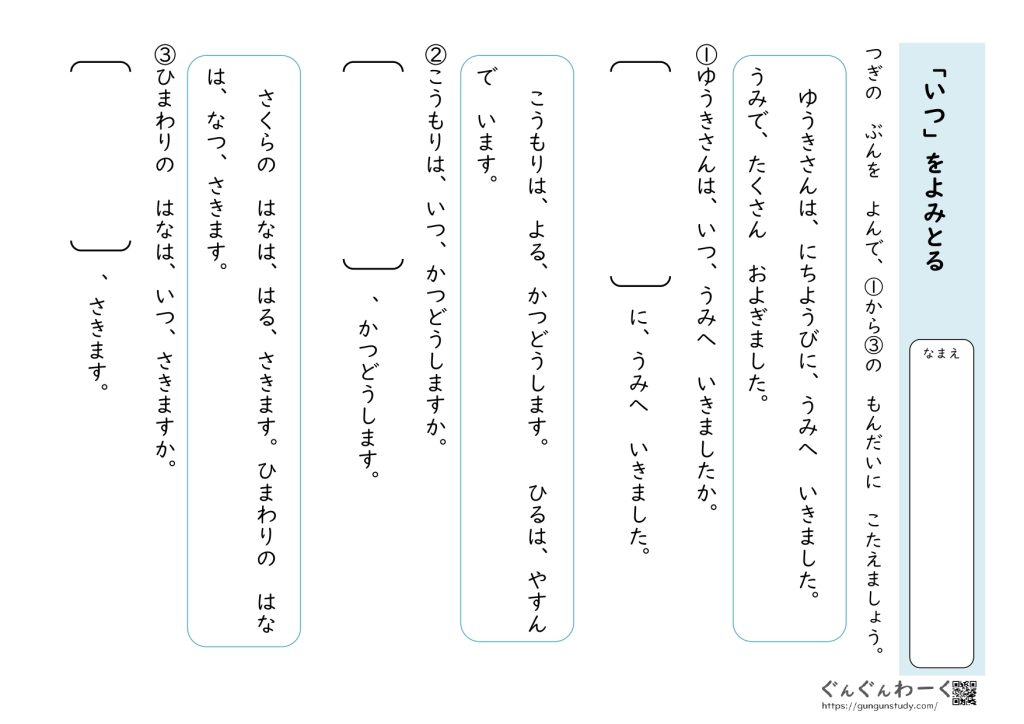 「いつ」をよみとる
なまえ
つぎの　ぶんを　よんで、①から③の　もんだいに　こたえましょう。
ゆうきさんは、にちようびに、うみへ　いきました。
うみで、たくさん　およぎました。
①ゆうきさんは、いつ、うみへ　いきましたか。
に、うみへ　いきました。
こうもりは、よる、かつどうします。　ひるは、やすん
で　います。
②こうもりは、いつ、かつどうしますか。
、かつどうします。
さくらの　はなは、はる、さきます。ひまわりの　はな
は、なつ、さきます。
③ひまわりの　はなは、いつ、さきますか。
、さきます。
ぐんぐんわーく
https://gungunstudy.com/